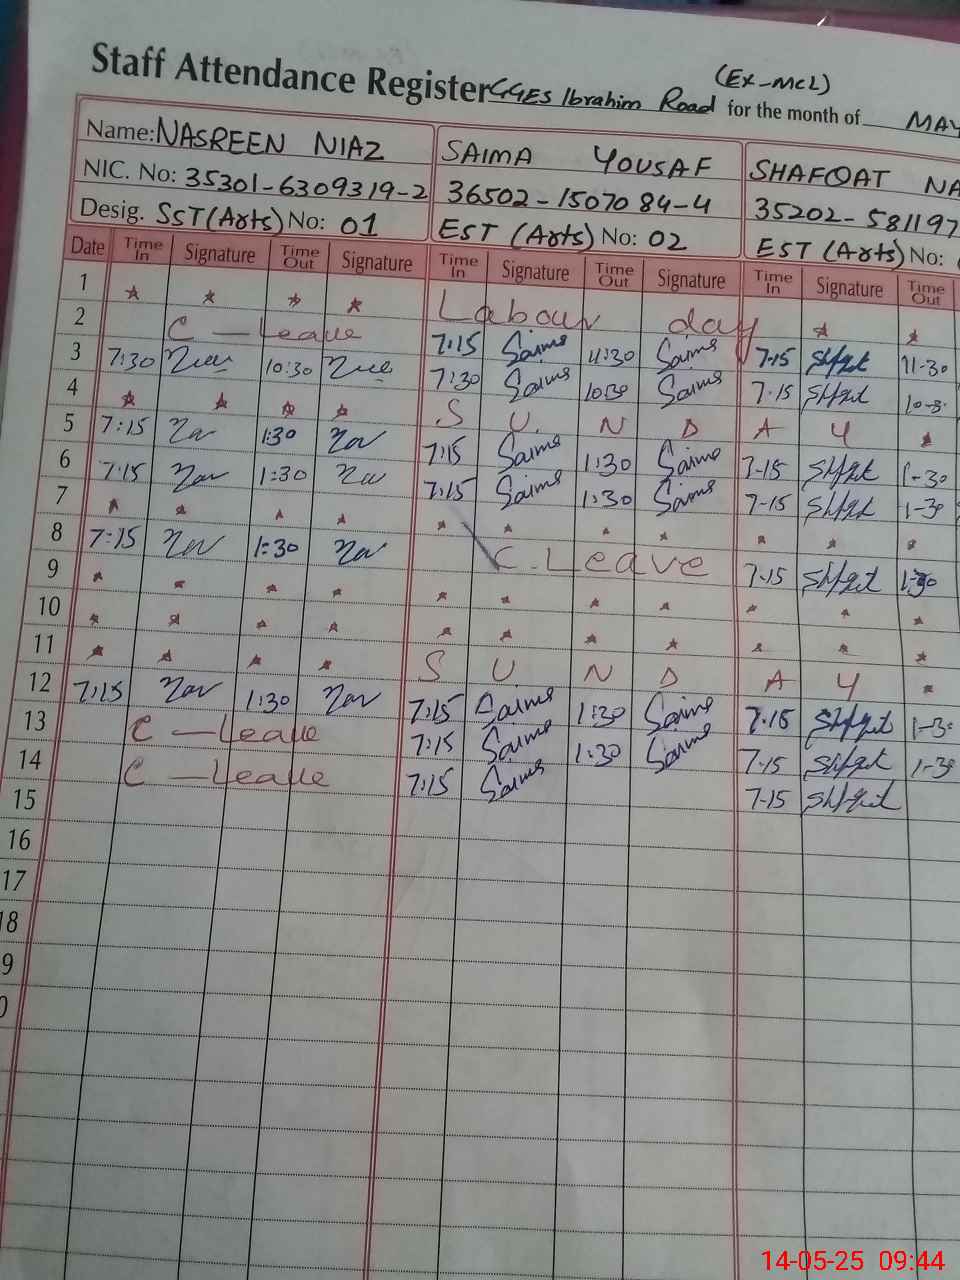 (Ex-MCL)
Staff Attendance Register GGES Ibrahim Road for the month of MAY
Name: NASREEN NIAZ SAIMA YOUSAF SHAFQAT NA
NIC. No: 35301-6309319-2 36502-1507084-4 35202-581197
Desig. SST (Arts) No: 01 EST (Arts) No: 02 EST (Arts) No:
Date Time In Signature Time Out Signature Time In Signature Time Out Signature Time In Signature Time Out
1 Labour day
2 C-Leave 7:15 Saima 11:30 Saima 7-15 11-30
3 7:30 10:30 7:30 Saima 10:30 Saima 7-15 10-3
4 S U N D A Y
5 7:15 1:30 7:15 Saima 1:30 Saima 7-15 1-30
6 7:15 1:30 7:15 Saima 1:30 Saima 7-15 1-30
7
8 7:15 1:30 C. Leave 7-15 1-30
9
10
11 S U N D A Y
12 7:15 1:30 7:15 Saima 1:30 Saima 7-15 1-30
13 C-Leave 7:15 Saima 1:30 Saima 7-15 1-30
14 C-Leave 7:15 Saima 7-15
15
16
17
18
9
0
14-05-25 09:44